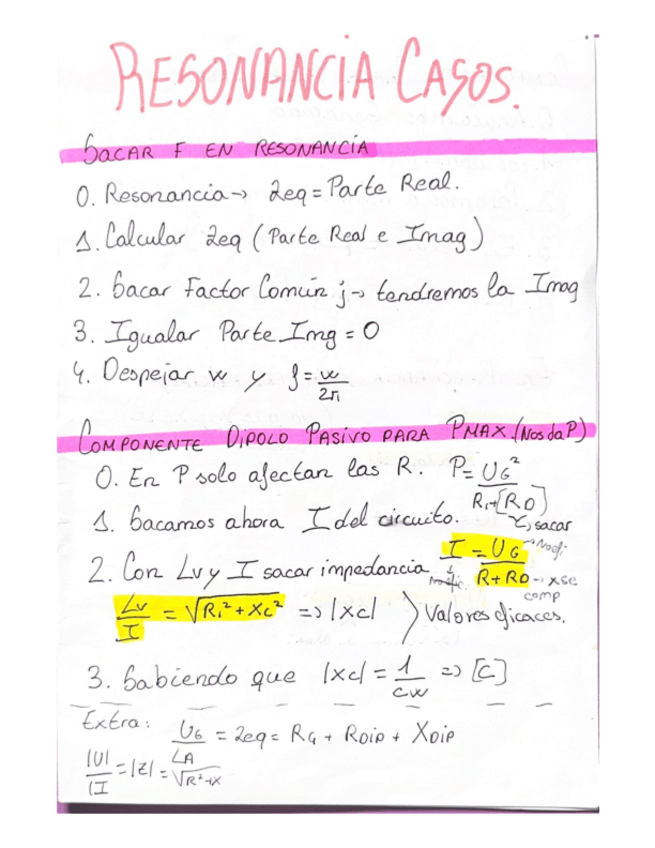 RESONANCIA CASOS.
SACAR F EN RESONANCIA
0. Resonancia → Zeq = Parte Real.
1. Calcular Zeq (Parte Real e Imag)
2. Sacar Factor Común j → tendremos la Imag
3. Igualar Parte Img = 0
4. Despejar w y f = w/2π
COMPONENTE DIPOLO PASIVO PARA PMAX. (Nos da P)
0. En P solo afectan las R. P = UG²/R1+[RD]
↳ sacar
1. Sacamos ahora I del circuito.
I = UG/R+RD
2. Con Lv y I sacar impedancia
→ xse comp
Lv/I = √R1²+Xc² => |xc| > Valores eficaces.
3. Sabiendo que |xc| = 1/cw => [C]
Extra: UG/LA = Zeq = RG + RDIP + XDIP
|U|/|I = |Z| = √R²+X